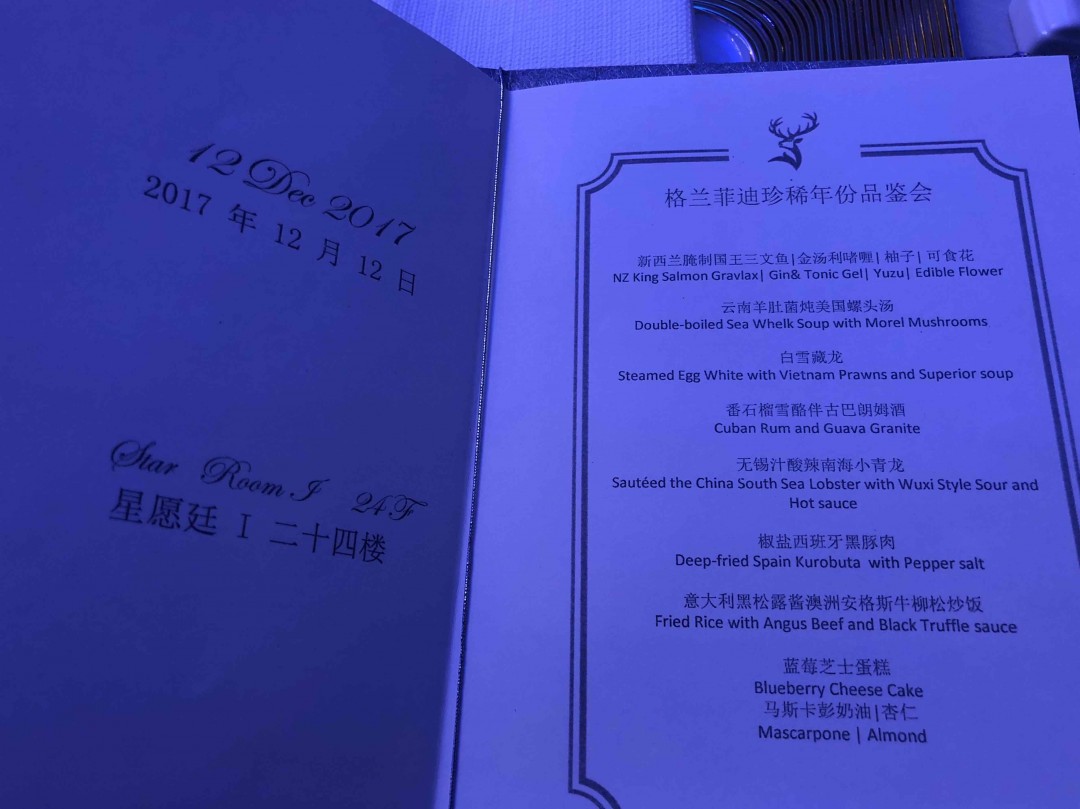 12 Dec 2017
2017 年 12 月 12 日
Star Room I 24F
星愿廷 I 二十四楼
格兰菲迪珍稀年份品鉴会
新西兰腌制国王三文鱼|金汤利啫喱| 柚子| 可食花
NZ King Salmon Gravlax| Gin& Tonic Gel| Yuzu| Edible Flower
云南羊肚菌炖美国螺头汤
Double-boiled Sea Whelk Soup with Morel Mushrooms
白雪藏龙
Steamed Egg White with Vietnam Prawns and Superior soup
番石榴雪酪伴古巴朗姆酒
Cuban Rum and Guava Granite
无锡汁酸辣南海小青龙
Sautéed the China South Sea Lobster with Wuxi Style Sour and
Hot sauce
椒盐西班牙黑豚肉
Deep-fried Spain Kurobuta with Pepper salt
意大利黑松露酱澳洲安格斯牛柳松炒饭
Fried Rice with Angus Beef and Black Truffle sauce
蓝莓芝士蛋糕
Blueberry Cheese Cake
马斯卡彭奶油|杏仁
Mascarpone | Almond